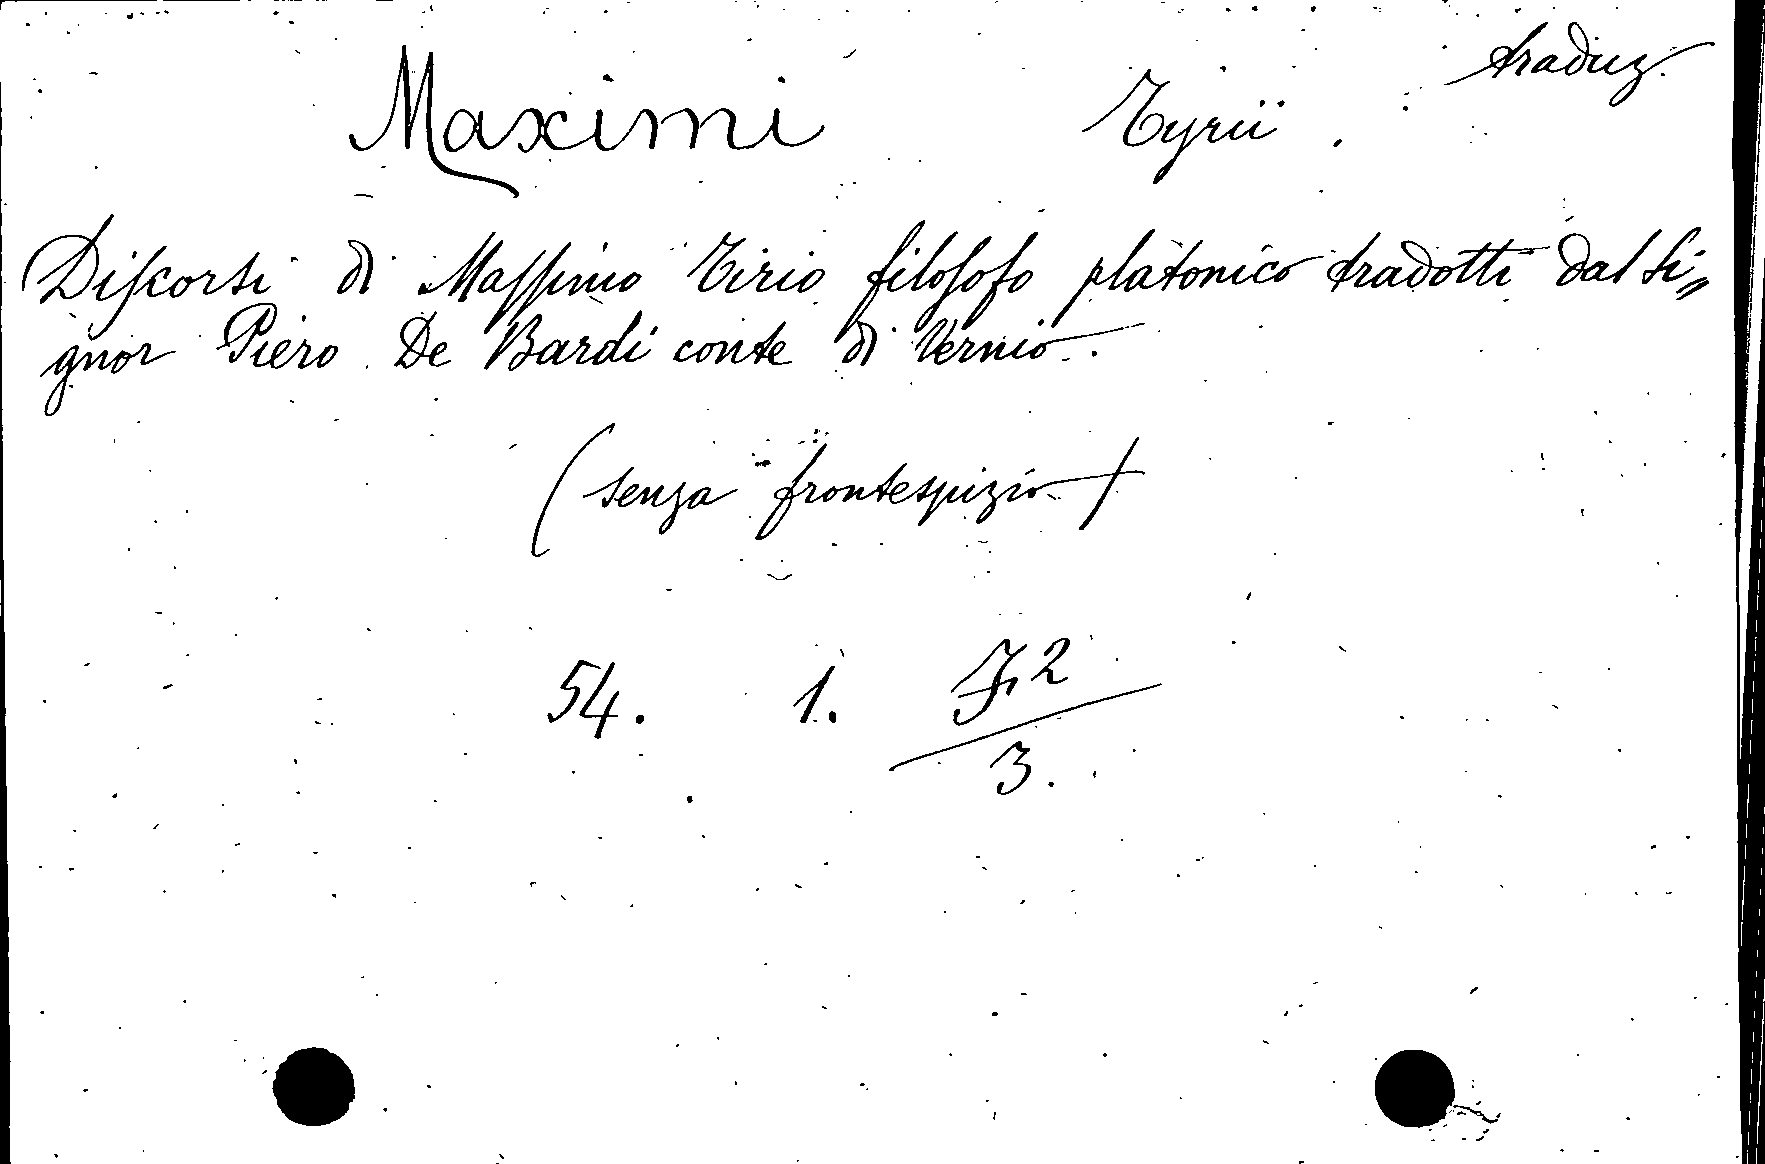 traduz.
Maximi Tyrii.
Diſcorsi di Maſſimo Tirio filoſofo platonico tradotti dal Si=
gnor Piero De Bardi conte di Vernio.
(senza frontespizio)
54. 1. F2
3.